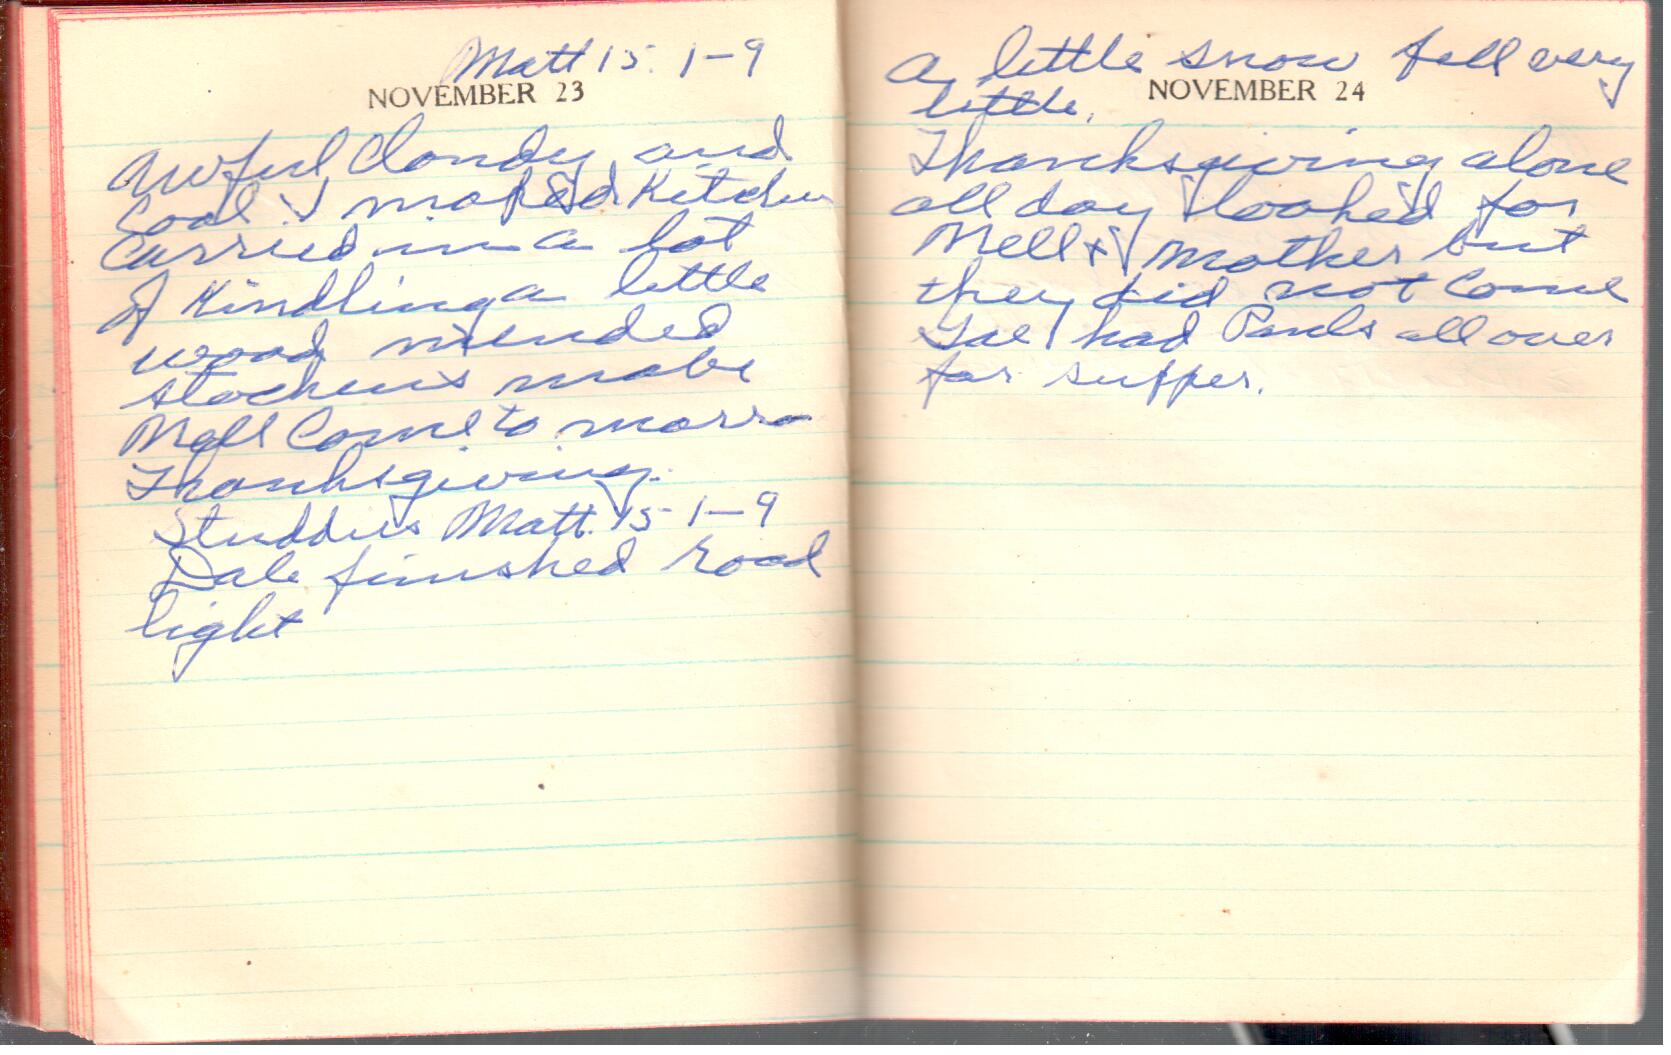 Matt 15. 1-9
NOVEMBER 23
Awful Cloudy and
Cool I moped Kitchen
Carried in a lot
of Kindling a little
wood mended
stockens mabe
Mell Come to morro
Thanksgiving.
Studdies Matt. 15-1-9
Dale finished road
light
A little snow fell very
NOVEMBER 24
little.
Thanksgiving alone
all day I looked for
Mell & Mother but
they did not Come
had Pauls all over
for supper.